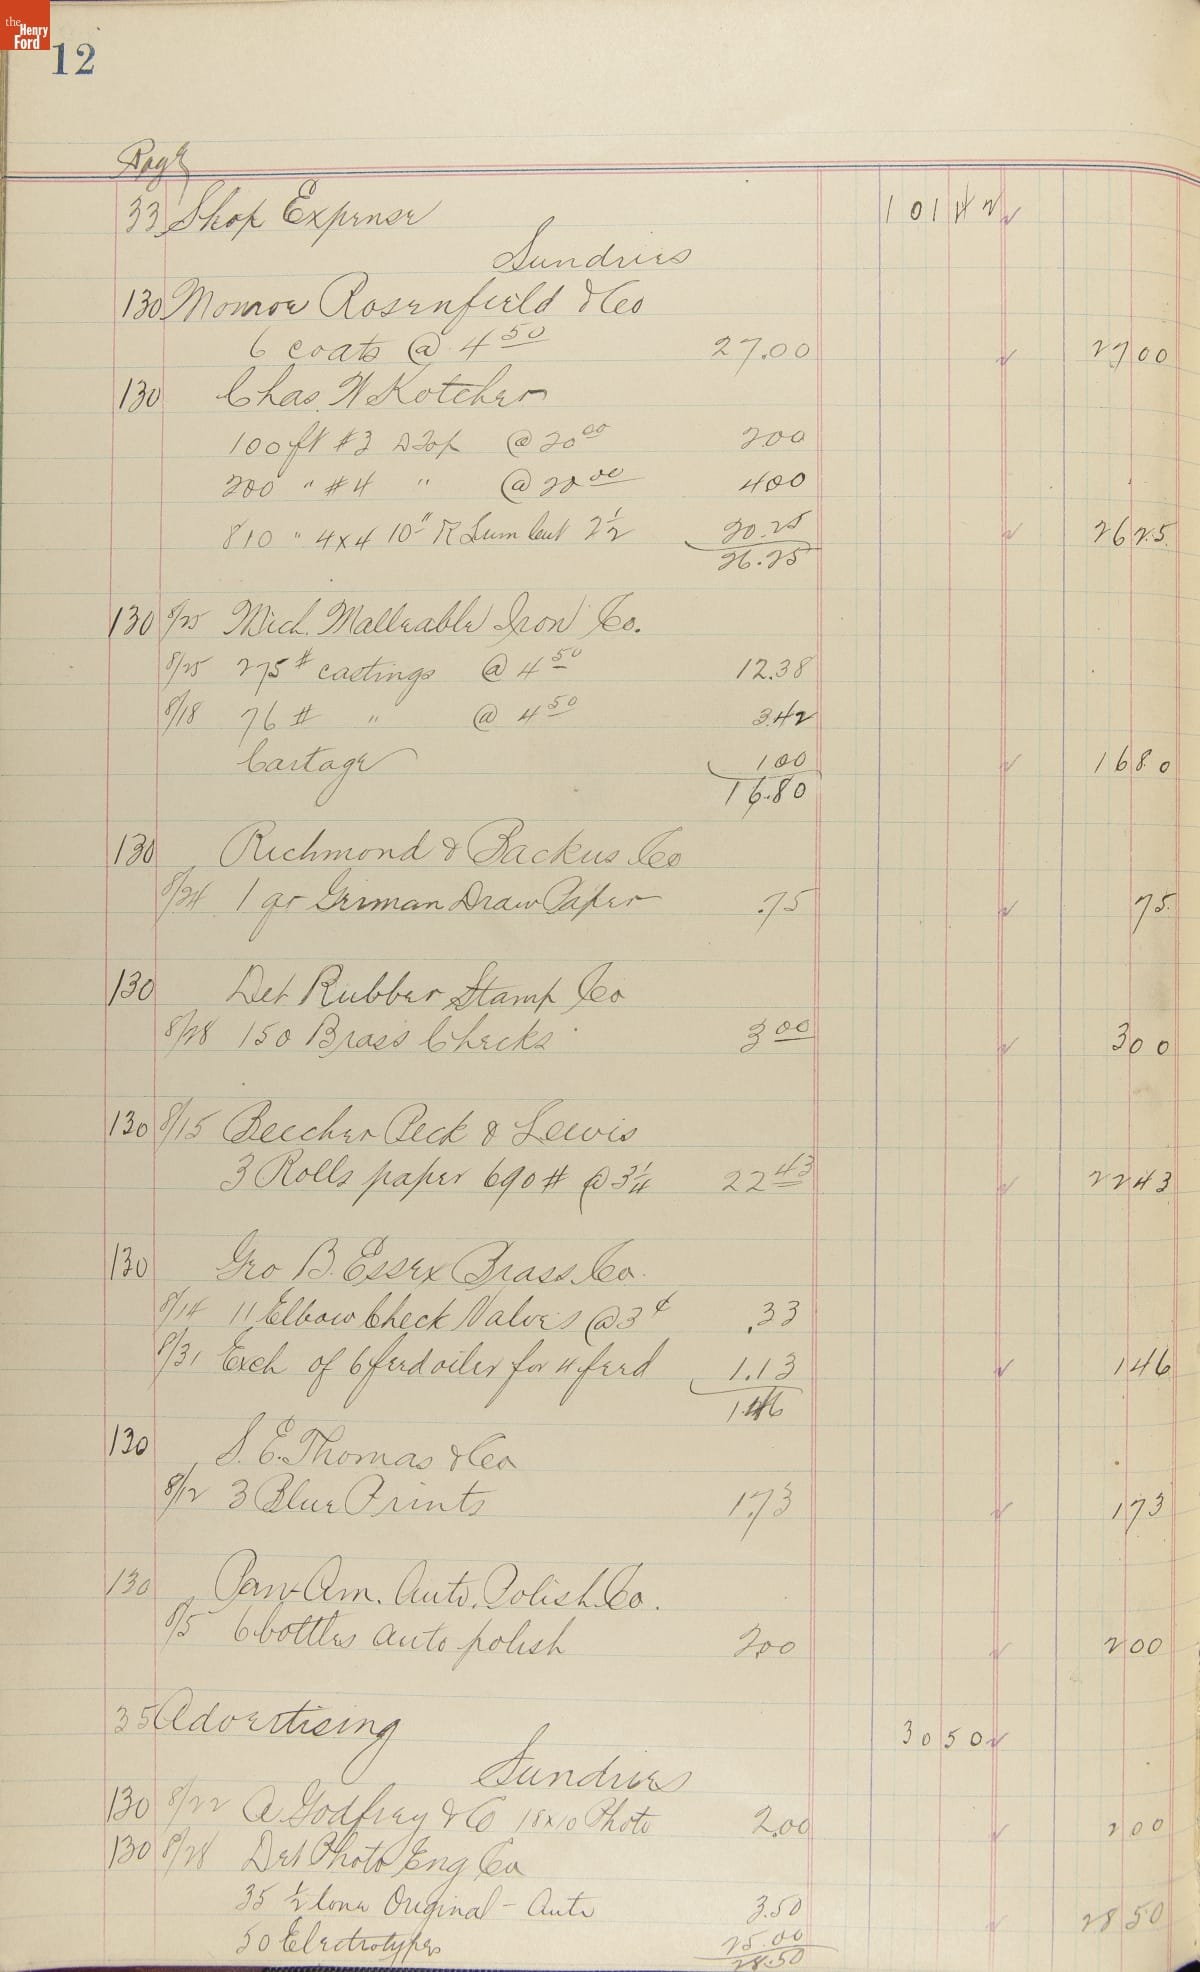 the Henry Ford
12
Page
33 Shop Expense 101 42
Sundries
130 Monroe Rosenfield & Co
6 coats @ 4 50 27.00 27 00
130 Chas. W Kotcher
100 ft #3 @ 20 00 200
200 " #4 " @ 20 00 400
810 " 4x4 10" 2 1/2 20.25 26 25
26.25
130 8/25 Mich. Malleable Iron Co.
8/25 275 # castings @ 4 50 12.38
8/18 76 # " @ 4 50 3.42
Cartage 100 16 80
16.80
130 Richmond & Backus Co
8/24 1 qr German Draw Paper .75 75
130 Det Rubber Stamp Co
8/28 150 Brass Checks 3 00 3 00
130 8/15 Beecher Peck & Lewis
3 Rolls paper 690# @ 3 1/4 22 43 22 43
130 Geo B. Essex Brass Co.
8/14 11 Elbow Check Valves @ 3 ¢ .33
8/31 Exch of 6 feed oiler for 4 feed 1.13 1 46
1.46
130 S. E. Thomas & Co
8/12 3 Blue Prints 1.73 1 73
130 Pan-Am. Auto. Polish Co.
8/5 6 bottles auto polish 2.00 2 00
35 Advertising 30 50
Sundries
130 8/22 A Godfrey & Co 18x10 Photo 2.00 2 00
130 8/28 Det Photo Eng Co
35 1/2 tone Original - Auto 3.50 28 50
50 Electrotypes 25.00
28.50